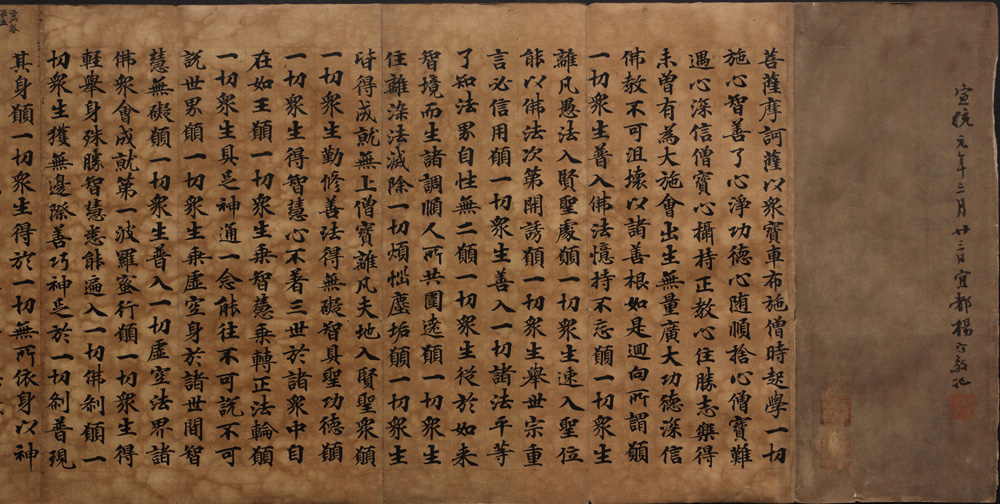 宣統元年三月廿三日宜都楊守敬記
菩薩摩訶薩以衆寶車布施僧時起學一切
施心智善了心淨功德心随順捨心僧寶難
遇心深信僧寶心攝持正教心住勝志樂得
未曾有為大施會出生無量廣大功德深信
佛教不可沮壞以諸善根如是迴向所謂願
一切衆生普入佛法憶持不忘願一切衆生
離凡愚法入賢聖處願一切衆生速入聖位
能以佛法次第開誘願一切衆生舉世宗重
言必信用願一切衆生善入一切諸法平等
了知法界自性無二願一切衆生從於如来
智境而生諸調順人所共圍遶願一切衆生
住離染法滅除一切煩惱塵垢願一切衆生
皆得成就無上僧寶離凡夫地入賢聖衆願
一切衆生勤修善法得無礙智具聖功德願
一切衆生得智慧心不著三世於諸衆中自
在如王願一切衆生乘智慧乘轉正法輪願
一切衆生具足神通一念能往不可說不可
說世界願一切衆生乘虛空身於諸世間智
慧無礙願一切衆生普入一切虛空法界諸
佛衆會成就第一波羅蜜行願一切衆生得
輕舉身殊勝智慧悉能遍入一切佛剎願一
切衆生獲無邊際善巧神足於一切剎普現
其身願一切衆生得於一切無所依身以神